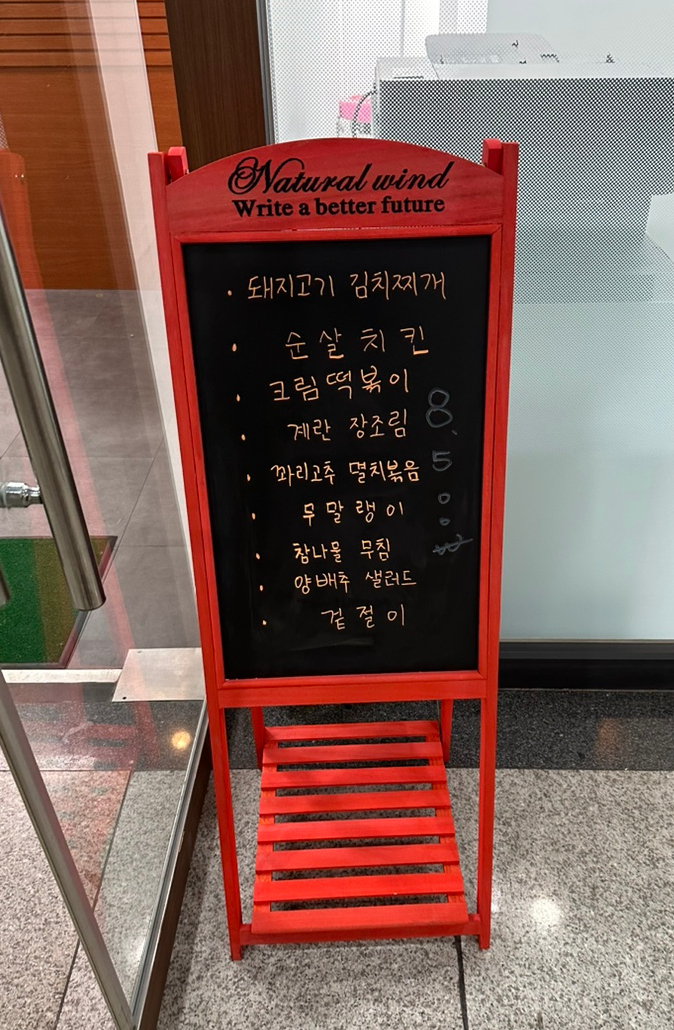 Natural wind
Write a better future
· 돼지고기 김치찌개
· 순살치킨
· 크림떡볶이
· 계란 장조림
· 꽈리고추 멸치볶음
· 무말랭이
· 참나물 무침
· 양배추 샐러드
· 겉절이
8,500₩